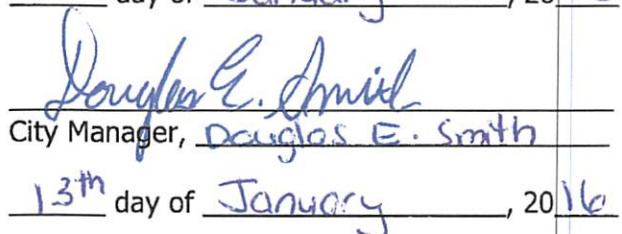 day of January, 20
Douglas E. Smith
City Manager, Douglas E. Smith
13th day of January, 2016